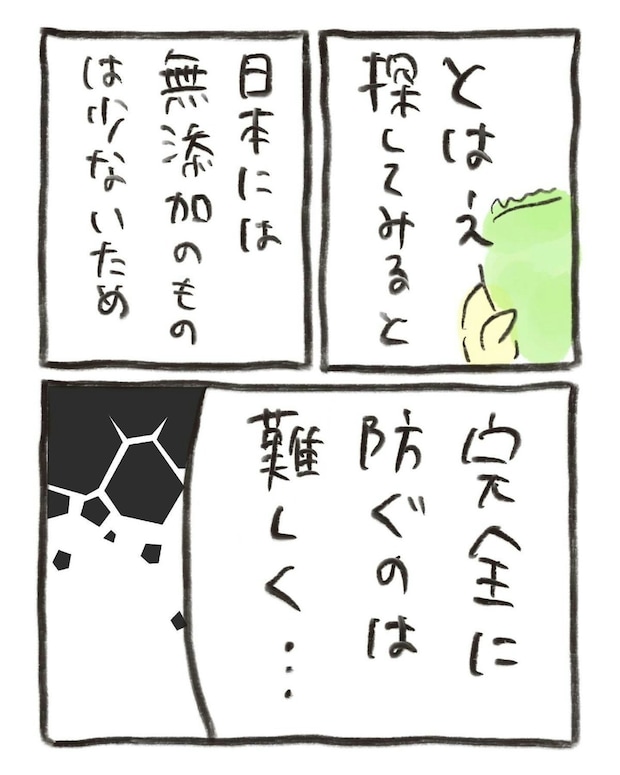 とはいえ
探してみると
日本には
無添加のもの
は少ないため
完全に
防ぐのは
難しく…